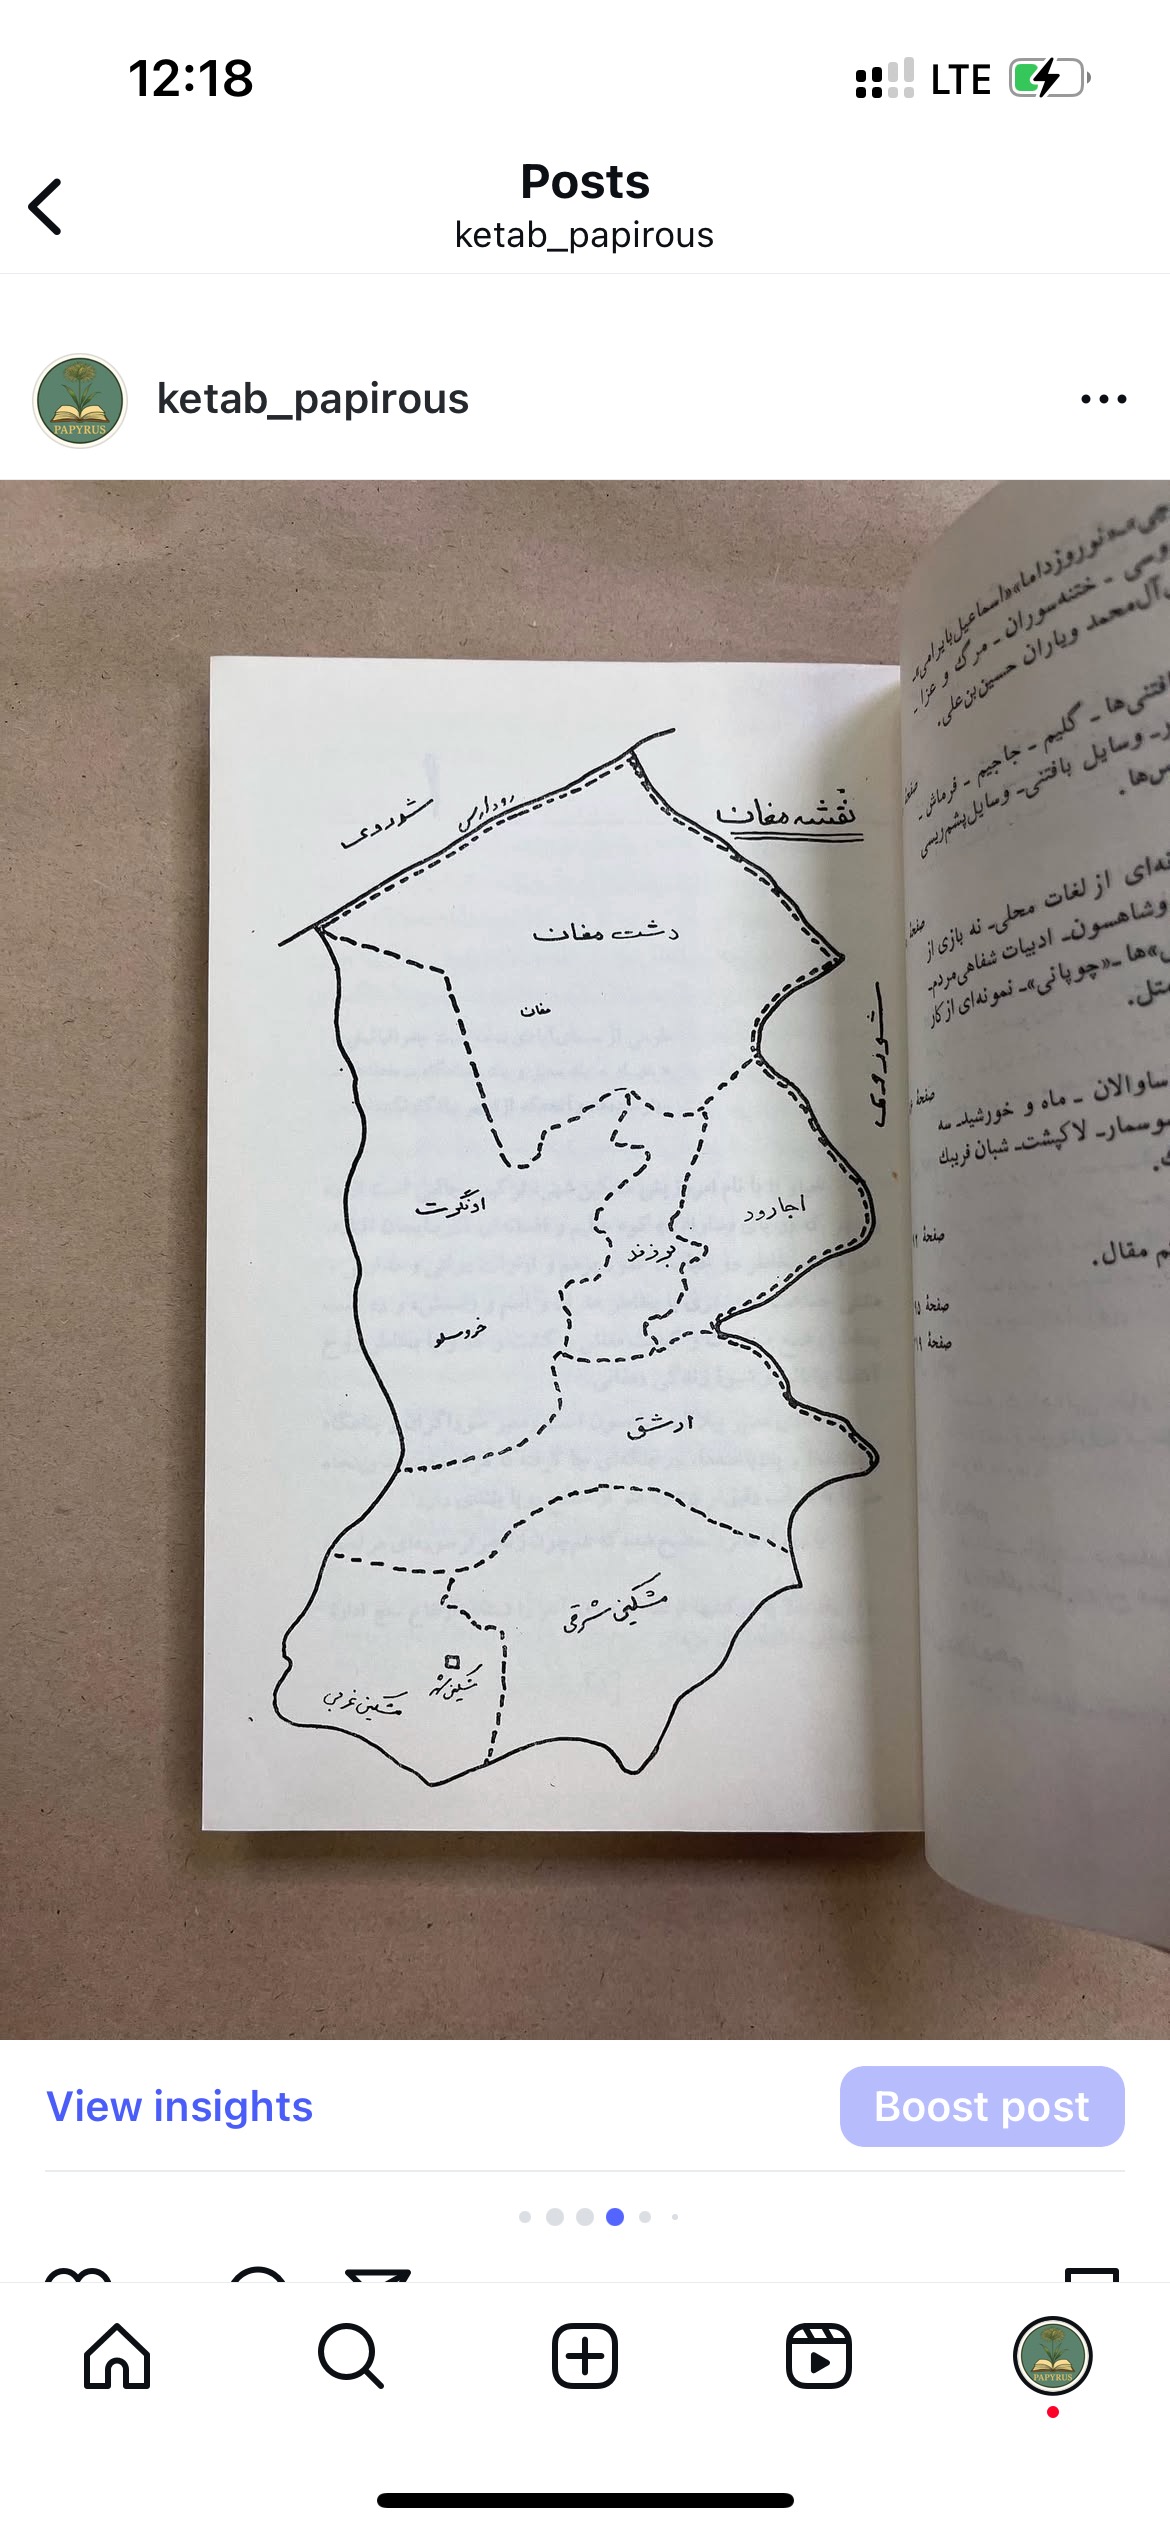 12:18
LTE
Posts
ketab_papirous
ketab_papirous
PAPYRUS
نقشه مغان
شوروی
رود ارس
دشت مغان
مغان
شوروی
اونگوت
اجارود
برزند
خروسلو
ارشق
مشکین شرقی
مشکین شهر
مشکین غربی
نوروز داما» «اسماعیل بایرامی»ـ
وسی - ختنه‌سوران - مرگ و عزا ـ
آل‌محمد ویاران حسین‌بن‌علی.
فتنی‌ها ـ گلیم - جاجیم - فرماش ـ
ـ وسایل بافتنی- وسایل پشم‌ریسی
س‌ها.
نه‌ای از لغات محلی- نه بازی از
وشاهسون- ادبیات شفاهی مردم-
»ها -«چوپانی»- نمونه‌ای از کار
متل.
صفحهٔ
ساوالان - ماه و خورشید- سه
سوسمار- لاکپشت- شبان فریبك
صفحهٔ
م مقال.
صفحهٔ
صفحهٔ
View insights
Boost post
PAPYRUS